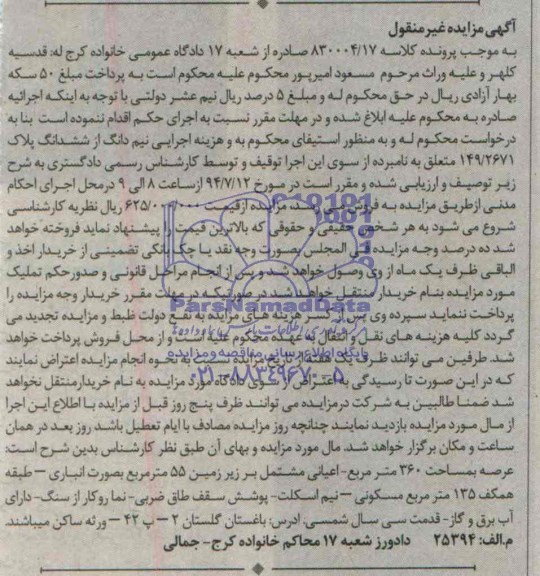 آگهی مزایده غیر منقول
به موجب پرونده کلاسه ۸۳۰۰۰۴/۱۷ صادره از شعبه ۱۷ دادگاه عمومی خانواده کرج له: قدسیه
کلهر و علیه وراث مرحوم مسعود امیرپور محکوم علیه محکوم است به پرداخت مبلغ ۵۰ سکه
بهار آزادی ریال در حق محکوم له و مبلغ ۵ درصد ریال نیم عشر دولتی با توجه به اینکه اجرائیه
صادره به محکوم علیه ابلاغ شده و در مهلت مقرر نسبت به اجرای حکم اقدام ننموده است بنا به
درخواست محکوم له و به منظور استیفای محکوم به و هزینه اجرایی نیم دانگ از ششدانگ پلاک
۱۴۹/۲۶۷۱ متعلق به نامبرده از سوی این اجرا توقیف و توسط کارشناس رسمی دادگستری به شرح
زیر توصیف و ارزیابی شده و مقرر است در مورخ ۹۴/۷/۱۲ از ساعت ۸ الی ۹ در محل اجرای احکام
مدنی از طریق مزایده به فروش رسد مزایده از قیمت ریال نظریه کارشناسی
شروع می شود به هر شخص حقیقی و حقوقی که بالاترین قیمت را پیشنهاد نماید فروخته خواهد
شد ده درصد وجه مزایده فی المجلس بصورت وجه نقد یا چک بانکی تضمینی از خریدار اخذ و
الباقی ظرف یک ماه از وی وصول خواهد شد و پس از انجام مراحل قانونی و صدور حکم تملیک
مورد مزایده بنام خریدار منتقل خواهد شد در صورتیکه در مهلت مقرر خریدار وجه مزایده را
پرداخت ننماید سپرده وی پس از کسر هزینه های مزایده به نفع دولت ضبط و مزایده تجدید می
گردد کلیه هزینه های نقل و انتقال به عهده محکوم علیه است و از محل فروش پرداخت خواهد
شد. طرفین می توانند ظرف یک هفته از تاریخ مزایده نسبت به نحوه انجام مزایده اعتراض نمایند
که در این صورت تا رسیدگی به اعتراض از سوی دادگاه مورد مزایده به نام خریدار منتقل نخواهد
شد ضمنا طالبین به شرکت در مزایده می توانند ظرف پنج روز قبل از مزایده با اطلاع این اجرا
از مال مورد مزایده بازدید نمایند چنانچه روز مزایده مصادف با ایام تعطیل باشد روز بعد در همان
ساعت و مکان برگزار خواهد شد. مال مورد مزایده و بهای آن طبق نظر کارشناس بدین شرح است:
عرصه بمساحت ۳۶۰ متر مربع- اعیانی مشتمل بر زیر زمین ۵۵ مترمربع بصورت انباری – طبقه
همکف ۱۳۵ متر مربع مسکونی – نیم اسکلت- پوشش سقف طاق ضربی- نما روکار از سنگ- دارای
آب برق و گاز- قدمت سی سال شمسی. ادرس: باغستان گلستان ۲ – پ ۴۲ – ورثه ساکن میباشند.
م.الف: ۲۵۳۹۴ دادورز شعبه ۱۷ محاکم خانواده کرج- جمالی
ParsNamadData
پایگاه اطلاع رسانی مناقصه و مزایده
۰۲۱-۸۸۳۴۹۶۷۰-۵